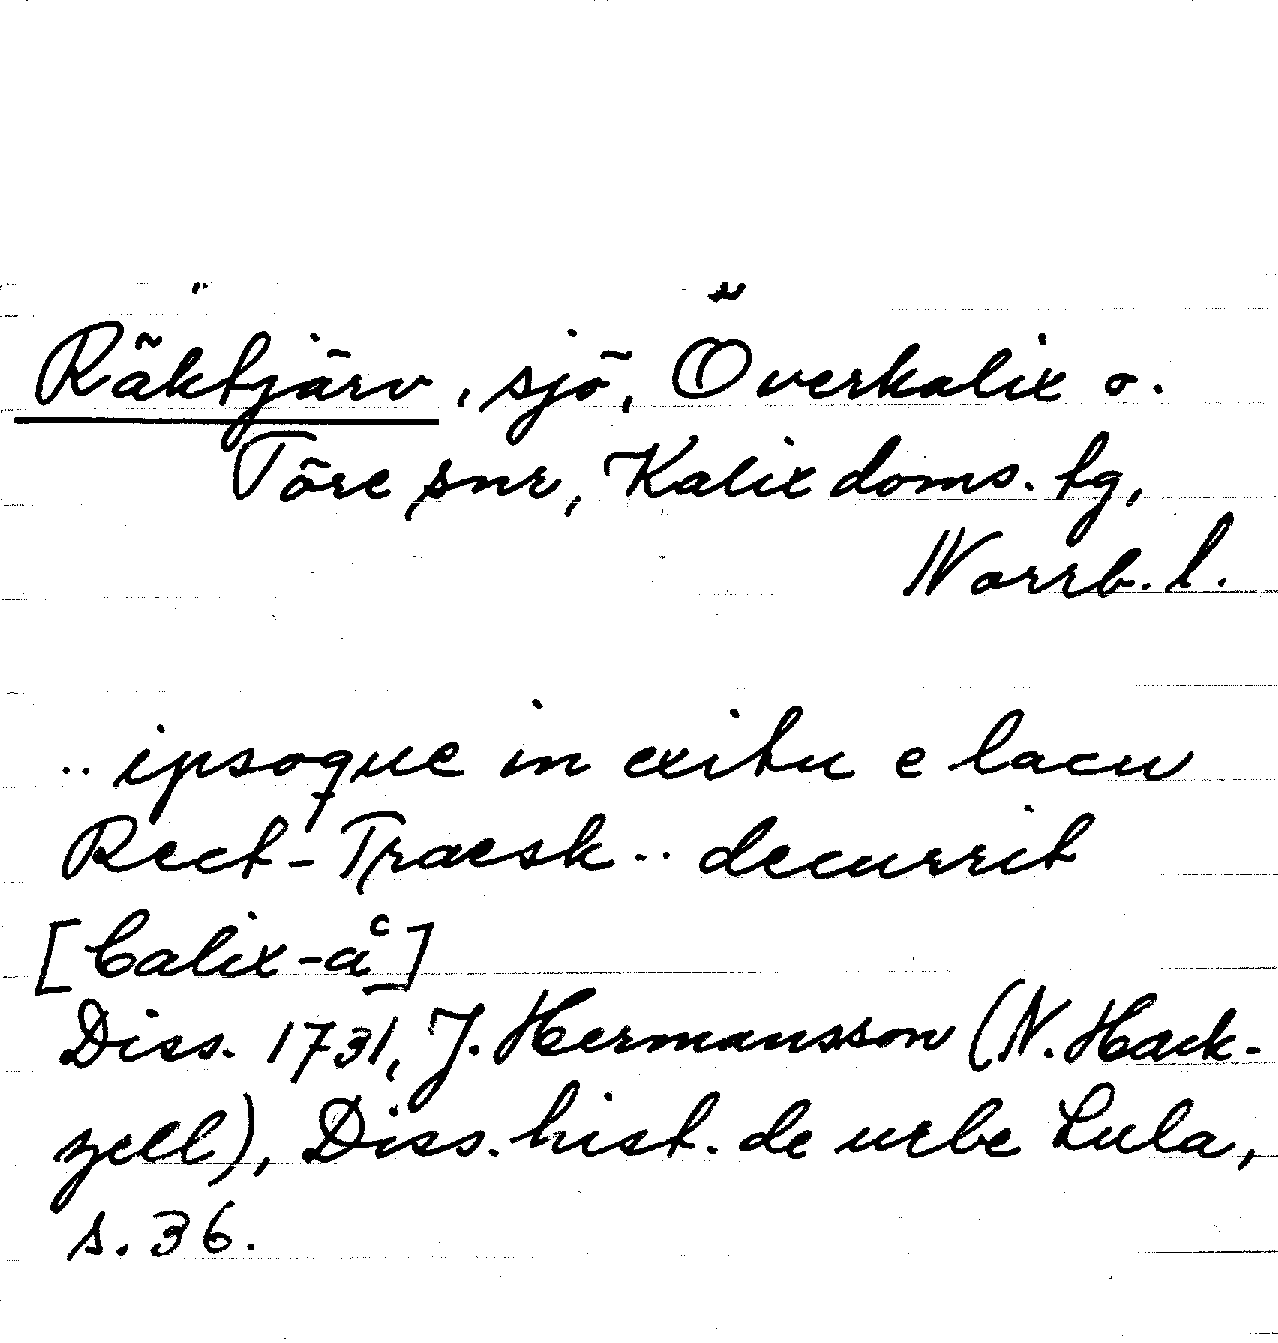 Räktjärv, sjö, Överkalix o.
Töre snr, Kalix doms. tg,
Norrb. l.
.. ipsoque in exitu e lacu
Rect-Traesk .. decurrit
[Calix-å]
Diss. 1731, J. Hermansson (N. Hack-
zell), Diss. hist. de urbe Lula,
s. 36.